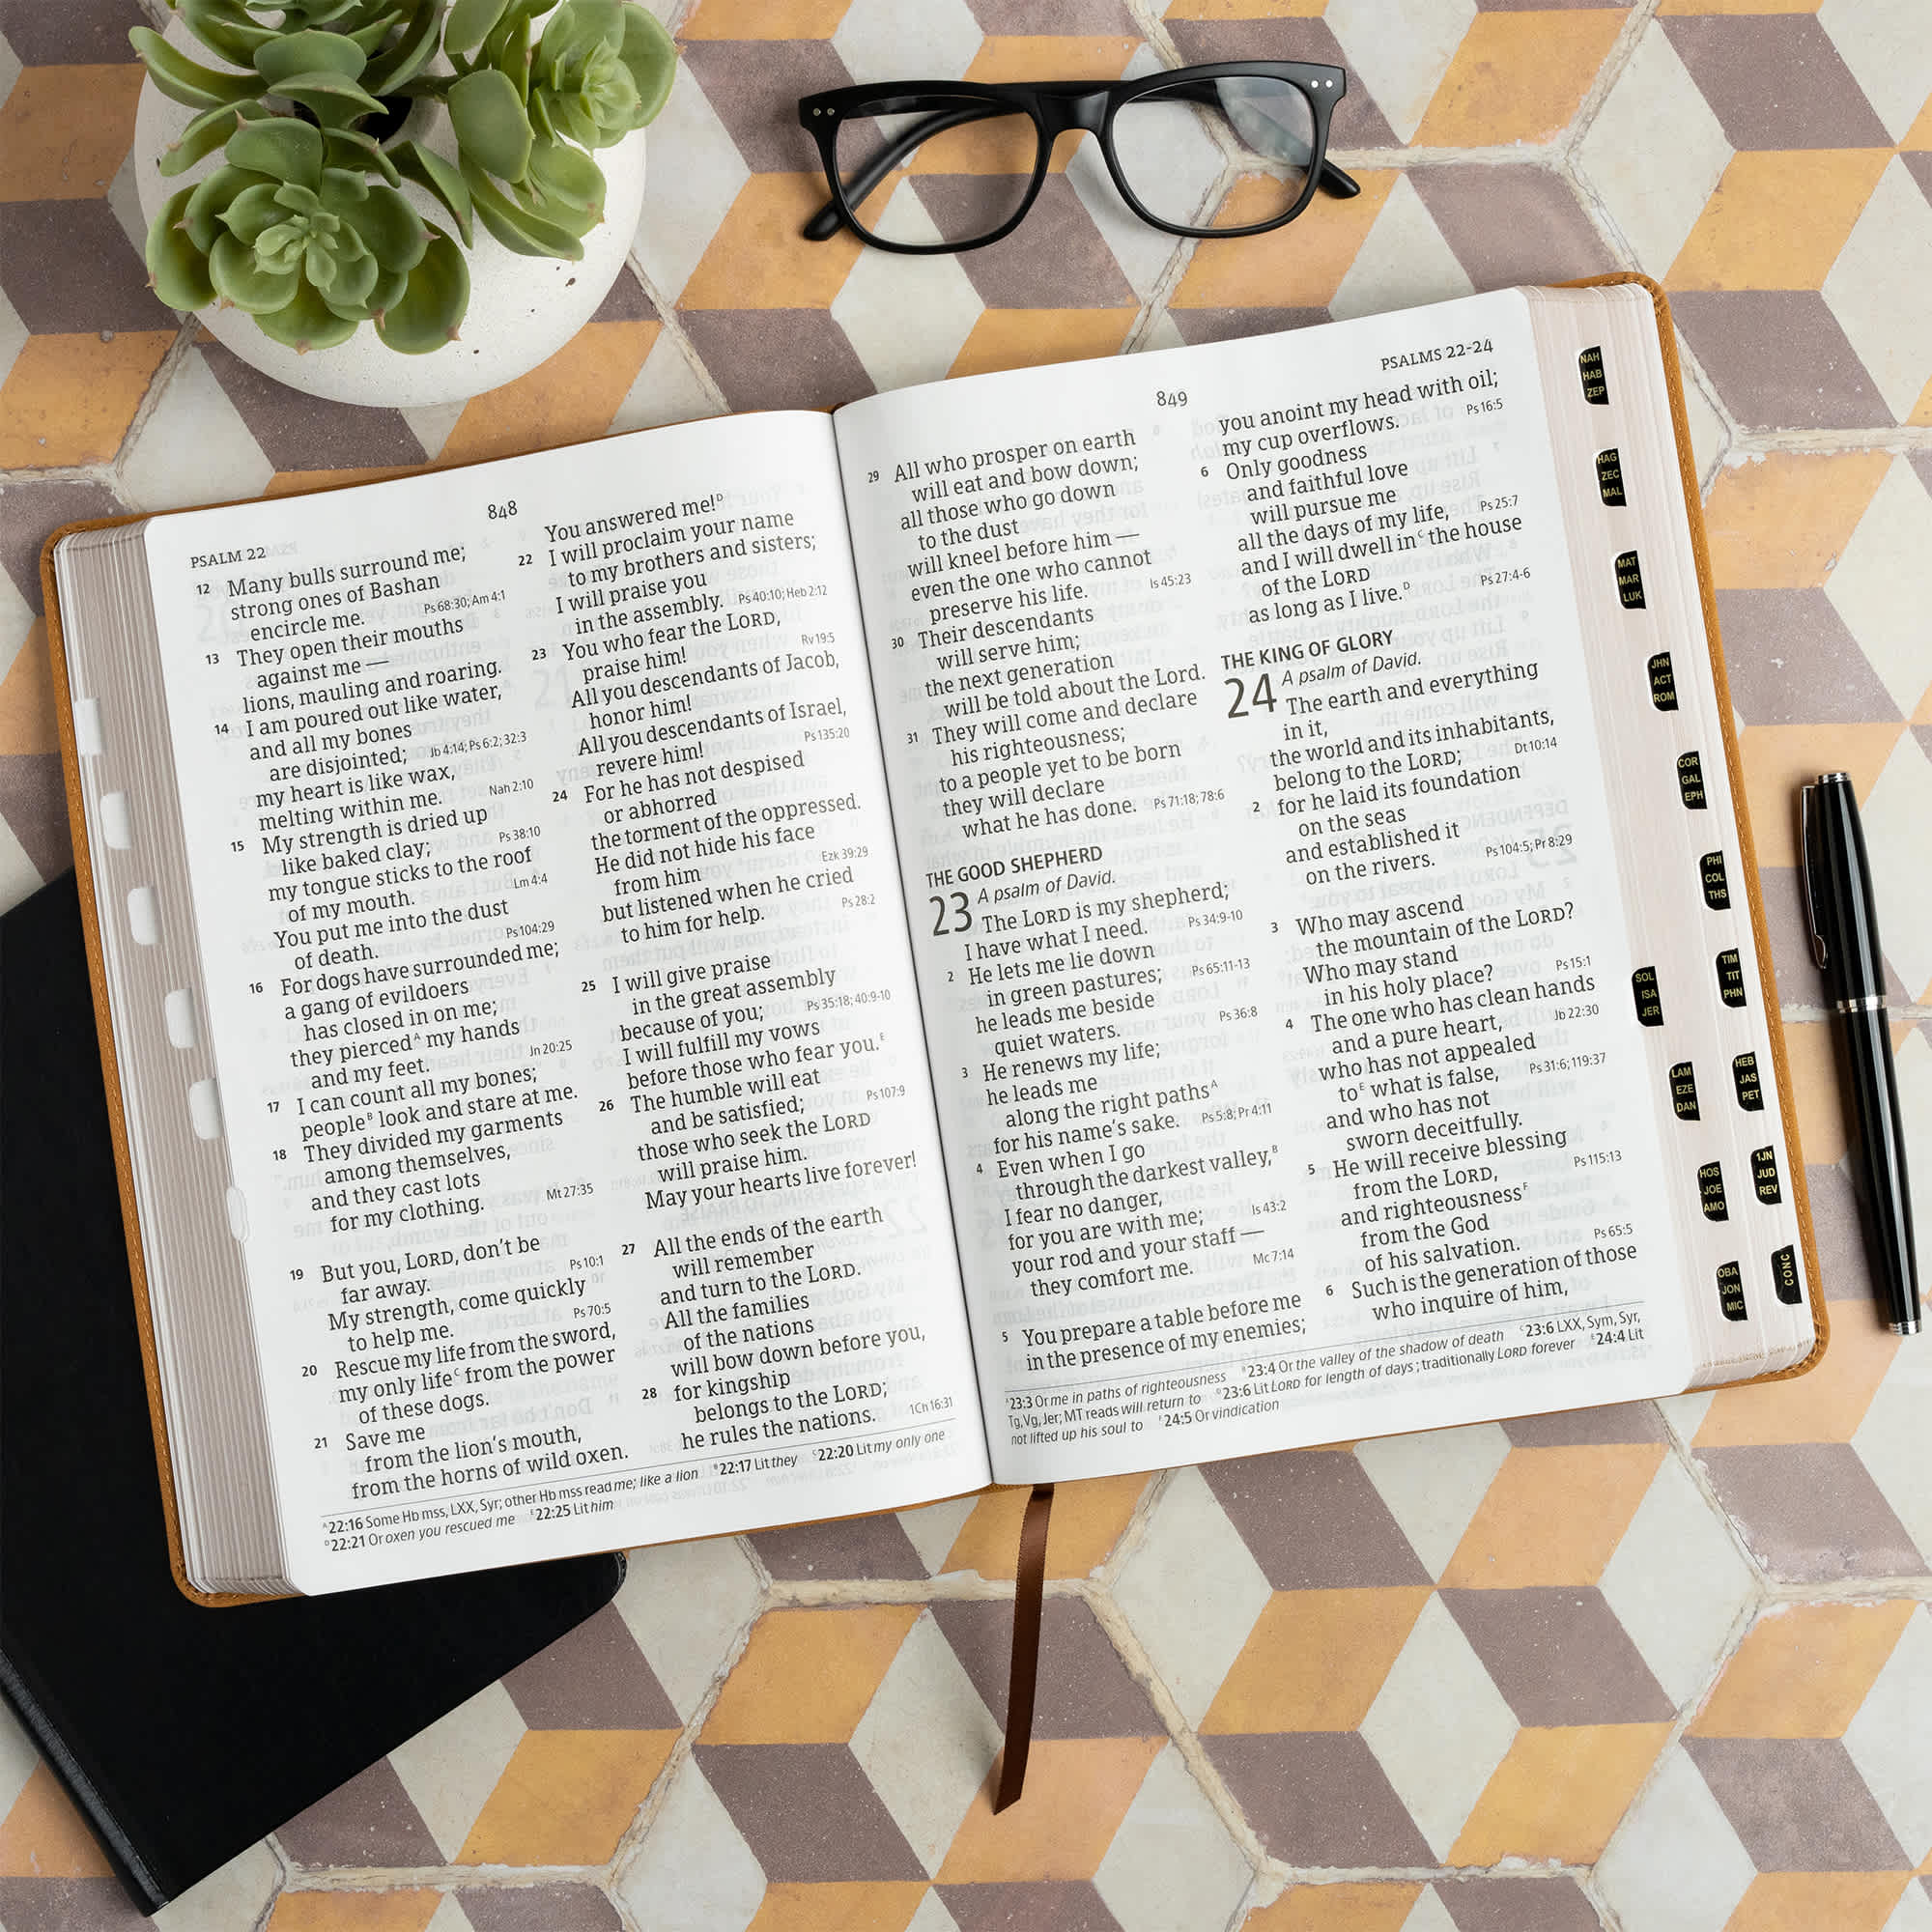 PSALM 22
848
12 Many bulls surround me;
strong ones of Bashan
encircle me. Ps 68:30; Am 4:1
13 They open their mouths
against me —
lions, mauling and roaring.
14 I am poured out like water,
and all my bones
are disjointed; Jb 4:14; Ps 6:2; 32:3
my heart is like wax,
melting within me. Nah 2:10
15 My strength is dried up
like baked clay; Ps 38:10
my tongue sticks to the roof
of my mouth. Lm 4:4
You put me into the dust
of death. Ps 104:29
16 For dogs have surrounded me;
a gang of evildoers
has closed in on me;
they pierced^A my hands
and my feet. Jn 20:25
17 I can count all my bones;
people^B look and stare at me.
18 They divided my garments
among themselves,
and they cast lots
for my clothing. Mt 27:35
19 But you, LORD, don't be
far away. Ps 10:1
My strength, come quickly
to help me. Ps 70:5
20 Rescue my life from the sword,
my only life^C from the power
of these dogs.
21 Save me
from the lion's mouth,
from the horns of wild oxen.
You answered me!^D
22 I will proclaim your name
to my brothers and sisters;
I will praise you
in the assembly. Ps 40:10; Heb 2:12
23 You who fear the LORD,
praise him! Rv 19:5
All you descendants of Jacob,
honor him!
All you descendants of Israel,
revere him! Ps 135:20
24 For he has not despised
or abhorred
the torment of the oppressed.
He did not hide his face
from him Ezk 39:29
but listened when he cried
to him for help. Ps 28:2
25 I will give praise
in the great assembly
because of you; Ps 35:18; 40:9-10
I will fulfill my vows
before those who fear you.^E
26 The humble will eat
and be satisfied; Ps 107:9
those who seek the LORD
will praise him.
May your hearts live forever!
27 All the ends of the earth
will remember
and turn to the LORD.
All the families
of the nations
will bow down before you,
28 for kingship
belongs to the LORD;
he rules the nations. 1Ch 16:31
^A 22:16 Some Hb mss, LXX, Syr; other Hb mss read me; like a lion ^B 22:17 Lit they ^C 22:20 Lit my only one
^D 22:21 Or oxen you rescued me ^E 22:25 Lit him
849
PSALMS 22-24
29 All who prosper on earth
will eat and bow down;
all those who go down
to the dust
will kneel before him —
even the one who cannot
preserve his life. Is 45:23
30 Their descendants
will serve him;
the next generation
will be told about the Lord.
31 They will come and declare
his righteousness;
to a people yet to be born
they will declare
what he has done. Ps 71:18; 78:6
THE GOOD SHEPHERD
23 A psalm of David.
The LORD is my shepherd;
I have what I need. Ps 34:9-10
2 He lets me lie down
in green pastures; Ps 65:11-13
he leads me beside
quiet waters. Ps 36:8
3 He renews my life;
he leads me
along the right paths^A
for his name's sake. Ps 5:8; Pr 4:11
4 Even when I go
through the darkest valley,^B
I fear no danger,
for you are with me; Is 43:2
your rod and your staff —
they comfort me. Mc 7:14
5 You prepare a table before me
in the presence of my enemies;
you anoint my head with oil;
my cup overflows. Ps 16:5
6 Only goodness
and faithful love
will pursue me
all the days of my life, Ps 25:7
and I will dwell in^C the house
of the LORD
as long as I live.^D Ps 27:4-6
THE KING OF GLORY
24 A psalm of David.
The earth and everything
in it,
the world and its inhabitants,
belong to the LORD; Dt 10:14
2 for he laid its foundation
on the seas
and established it
on the rivers. Ps 104:5; Pr 8:29
3 Who may ascend
the mountain of the LORD?
Who may stand
in his holy place? Ps 15:1
4 The one who has clean hands
and a pure heart, Jb 22:30
who has not appealed
to^E what is false, Ps 31:6; 119:37
and who has not
sworn deceitfully.
5 He will receive blessing
from the LORD, Ps 115:13
and righteousness^F
from the God
of his salvation. Ps 65:5
6 Such is the generation of those
who inquire of him,
^A 23:3 Or me in paths of righteousness ^B 23:4 Or the valley of the shadow of death ^C 23:6 LXX, Sym, Syr,
Tg, Vg, Jer; MT reads will return to ^D 23:6 Lit LORD for length of days; traditionally LORD forever ^E 24:4 Lit
not lifted up his soul to ^F 24:5 Or vindication
NAH
HAB
ZEP
HAG
ZEC
MAL
MAT
MAR
LUK
JHN
ACT
ROM
COR
GAL
EPH
PHI
COL
THS
TIM
TIT
PHN
HEB
JAS
PET
1JN
JUD
REV
CONC
SOL
ISA
JER
LAM
EZE
DAN
HOS
JOE
AMO
OBA
JON
MIC